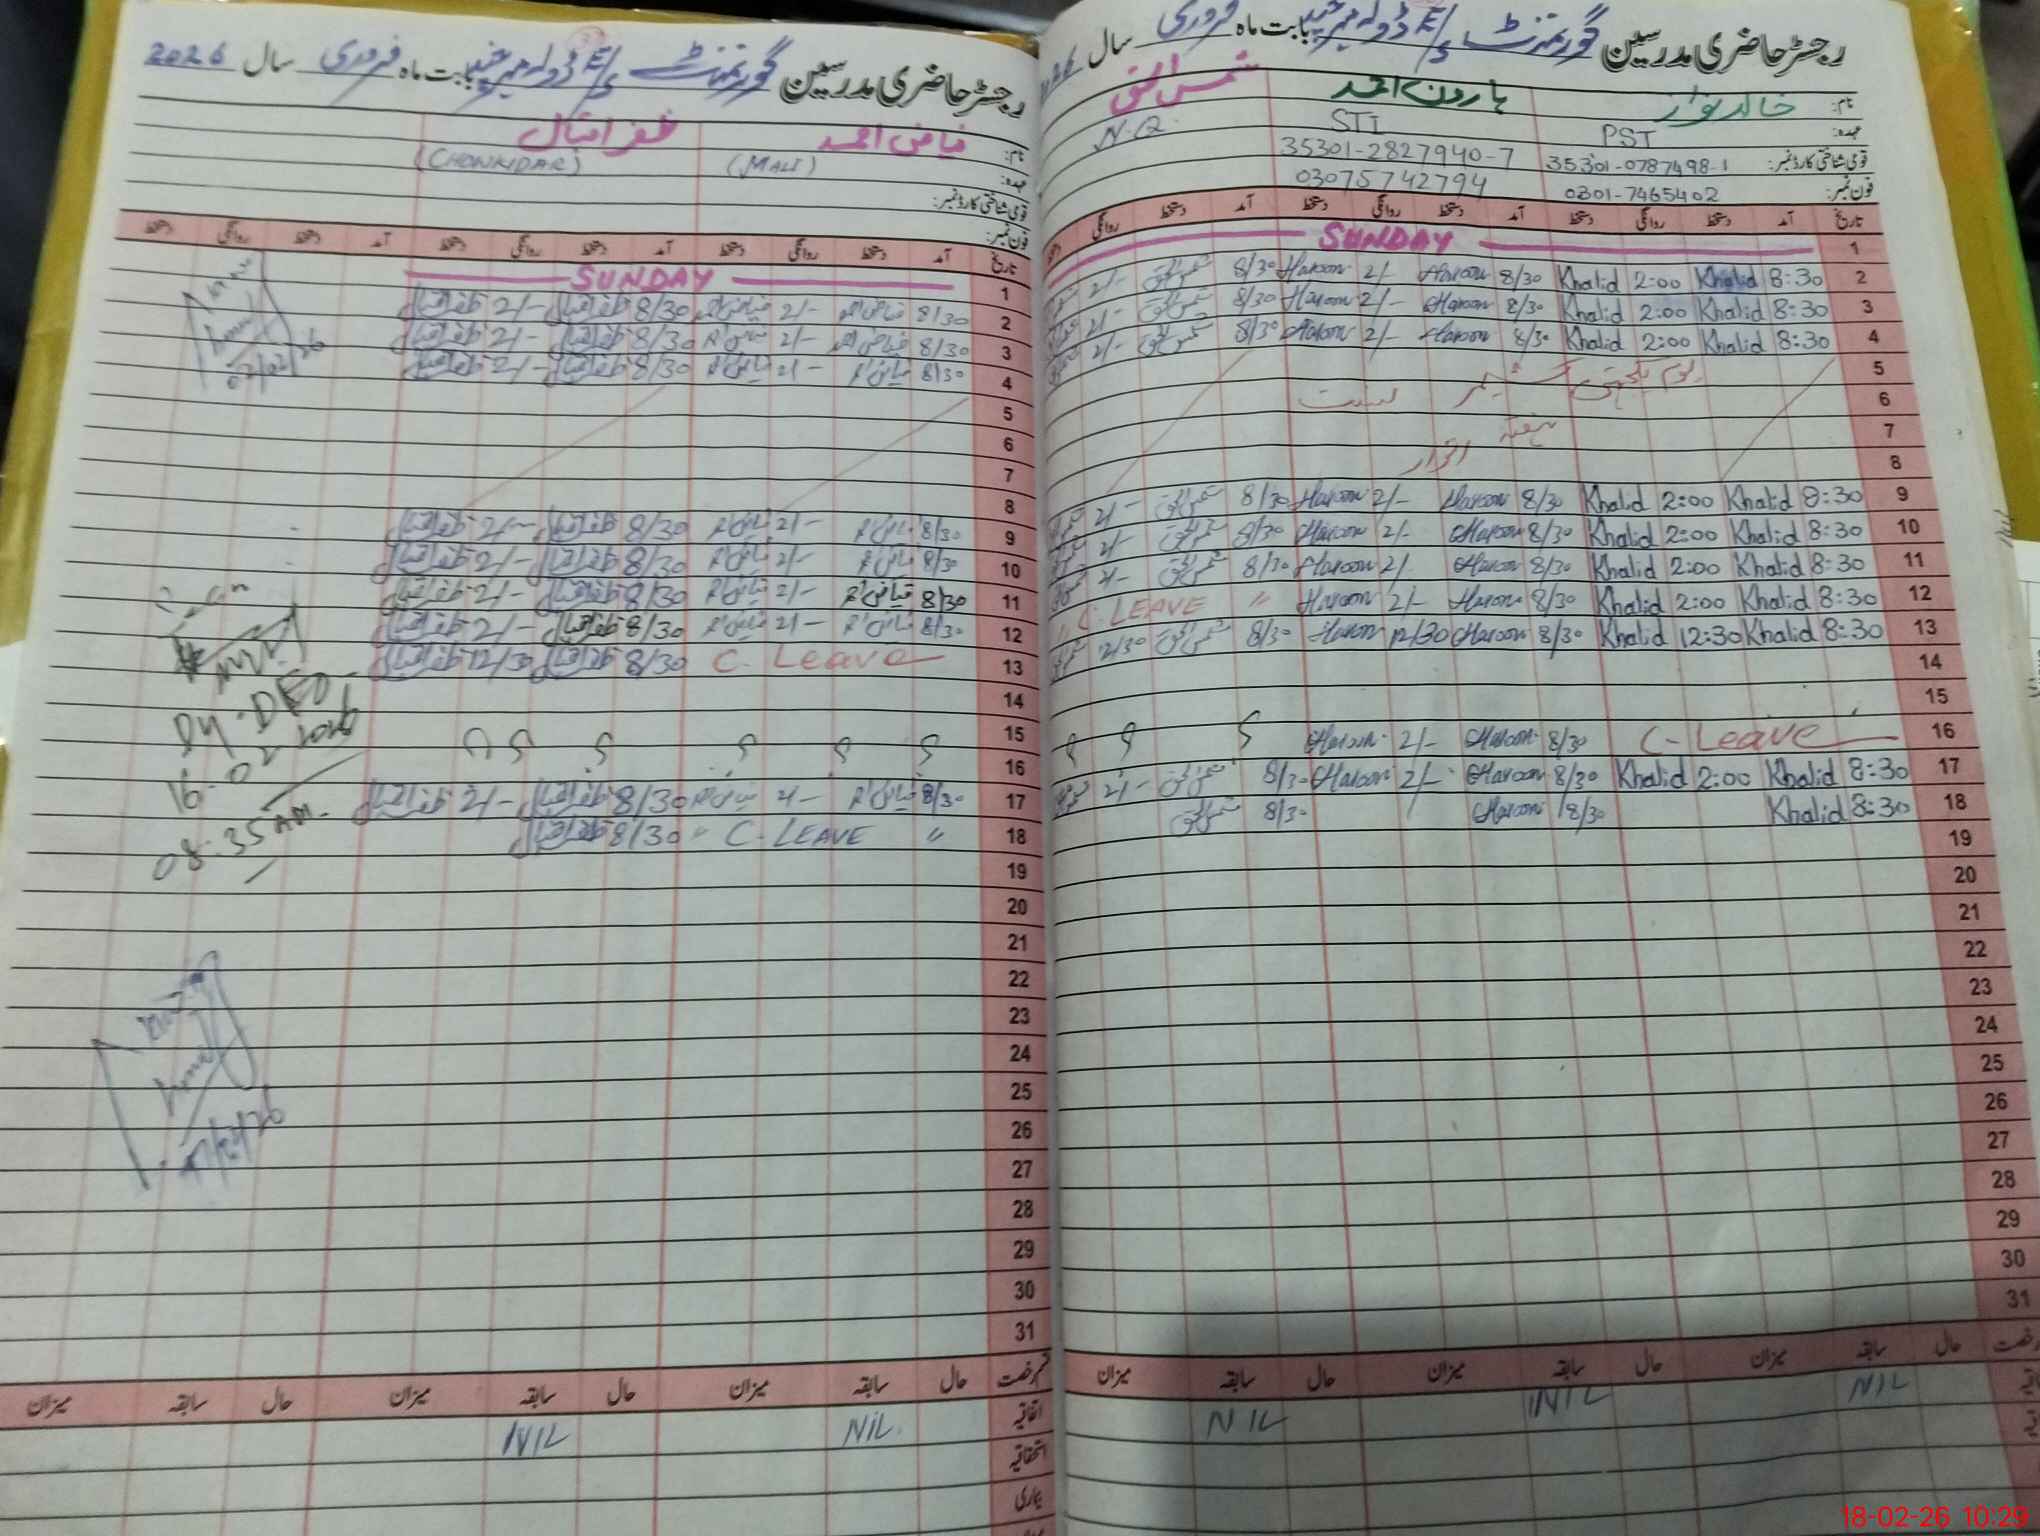 رجسٹر حاضری مدرسین گورنمنٹ E/S ڈولہ بابت ماہ فروری سال 2026
نام: خالد نواز ہارون احمد شمس الحق
عہدہ: PST STI N.Q.
قومی شناختی کارڈ نمبر: 35301-0787498-1 35301-2827940-7
فون نمبر: 0301-7465402 03075742794
تاریخ آمد دستخط روانگی دستخط آمد دستخط روانگی دستخط آمد دستخط روانگی
1 SUNDAY
2 8:30 Khalid 2:00 Khalid 8/30 Haroon 2/- Haroon 8/30 2/-
3 8:30 Khalid 2:00 Khalid 8/30 Haroon 2/- Haroon 8/30 2/-
4 8:30 Khalid 2:00 Khalid 8/30 Haroon 2/- Haroon 8/30 2/-
5 یوم یکجہتی کشمیر
6
7 ہفتہ
8 اتوار
9 8:30 Khalid 2:00 Khalid 8/30 Haroon 2/- Haroon 8/30 2/-
10 8:30 Khalid 2:00 Khalid 8/30 Haroon 2/- Haroon 8/30 2/-
11 8:30 Khalid 2:00 Khalid 8/30 Haroon 2/- Haroon 8/30 2/-
12 8:30 Khalid 2:00 Khalid 8/30 Haroon 2/- Haroon " C. LEAVE
13 8:30 Khalid 12:30 Khalid 8/30 Haroon 12/30 Haroon 8/30 12/30
14
15
16 C-Leave 8/30 Haroon 2/- Haroon
17 8:30 Khalid 2:00 Khalid 8/30 Haroon 2/- Haroon 8/30 2/-
18 8:30 Khalid 8/30 Haroon 8/30
19
20
21
22
23
24
25
26
27
28
29
30
31
حال سابقہ میزان حال سابقہ میزان حال سابقہ میزان
NIL NIL NIL
رجسٹر حاضری مدرسین گورنمنٹ E/S ڈولہ بابت ماہ فروری سال 2026
نام: فیاض احمد ظفر اقبال
عہدہ: (MALI) (CHONKIDAR)
قومی شناختی کارڈ نمبر:
فون نمبر:
تاریخ آمد دستخط روانگی دستخط آمد دستخط روانگی دستخط آمد دستخط روانگی دستخط
1 SUNDAY
2 8/30 2/- 8/30 ظفر اقبال 2/- ظفر اقبال
3 8/30 2/- 8/30 ظفر اقبال 2/- ظفر اقبال
4 8/30 2/- 8/30 ظفر اقبال 2/- ظفر اقبال
02/02/26
5
6
7
8
9 8/30 2/- 8/30 ظفر اقبال 2/- ظفر اقبال
10 8/30 2/- 8/30 ظفر اقبال 2/- ظفر اقبال
11 8/30 2/- 8/30 ظفر اقبال 2/- ظفر اقبال
12 8/30 2/- 8/30 ظفر اقبال 2/- ظفر اقبال
13 C. Leave 8/30 ظفر اقبال 12/30 ظفر اقبال
14
15
16
17 8/30 2/- 8/30 ظفر اقبال 2/- ظفر اقبال
18 " C-LEAVE " 8/30 ظفر اقبال
Dy. DEO
16-02-2026
08:35 AM.
19
20
21
22
23
24
25
26
27
28
29
30
31
قسم رخصت حال سابقہ میزان حال سابقہ میزان حال سابقہ میزان
اتفاقیہ NIL. NIL
استحقاقیہ
بیماری
18-02-26 10:29